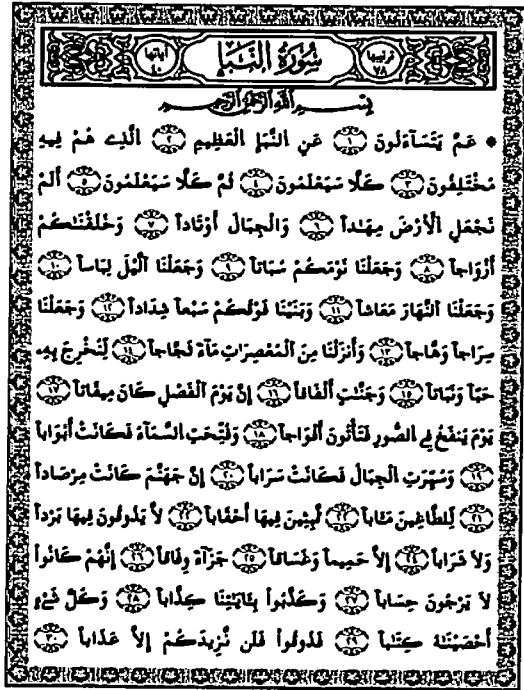 ترتيبها ٧٨ سُورَةُ النَّبَإِ آياتها ٤٠
بِسْمِ اللَّهِ الرَّحْمَٰنِ الرَّحِيمِ
* عَمَّ يَتَسَآءَلُونَ ١ عَنِ النَّبَإِ الْعَظِيمِ ٢ الَّذِي هُمْ فِيهِ
مُخْتَلِفُونَ ٣ كَلَّا سَيَعْلَمُونَ ٤ ثُمَّ كَلَّا سَيَعْلَمُونَ ٥ أَلَمْ
نَجْعَلِ الْأَرْضَ مِهَٰداً ٦ وَالْجِبَالَ أَوْتَاداً ٧ وَخَلَقْنَٰكُمْ
أَزْوَاجاً ٨ وَجَعَلْنَا نَوْمَكُمْ سُبَاتاً ٩ وَجَعَلْنَا الَّيْلَ لِبَاساً ١٠
وَجَعَلْنَا النَّهَارَ مَعَاشاً ١١ وَبَنَيْنَا فَوْقَكُمْ سَبْعاً شِدَاداً ١٢ وَجَعَلْنَا
سِرَاجاً وَهَّاجاً ١٣ وَأَنزَلْنَا مِنَ الْمُعْصِرَاتِ مَآءً ثَجَّاجاً ١٤ لِّنُخْرِجَ بِهِ
حَبّاً وَنَبَاتاً ١٥ وَجَنَّٰتٍ أَلْفَافاً ١٦ إِنَّ يَوْمَ الْفَصْلِ كَانَ مِيقَاتاً ١٧
يَوْمَ يُنفَخُ فِي الصُّورِ فَتَأْتُونَ أَفْوَاجاً ١٨ وَفُتِّحَتِ السَّمَآءُ فَكَانَتْ أَبْوَاباً
١٩ وَسُيِّرَتِ الْجِبَالُ فَكَانَتْ سَرَاباً ٢٠ إِنَّ جَهَنَّمَ كَانَتْ مِرْصَاداً
٢١ لِّلطَّٰغِينَ مَـَٔاباً ٢٢ لَّٰبِثِينَ فِيهَا أَحْقَاباً ٢٣ لَا يَذُوقُونَ فِيهَا بَرْداً
وَلَا شَرَاباً ٢٤ إِلَّا حَمِيماً وَغَسَاقاً ٢٥ جَزَآءً وِفَاقاً ٢٦ إِنَّهُمْ كَانُوا
لَا يَرْجُونَ حِسَاباً ٢٧ وَكَذَّبُوا بِـَٔايَٰتِنَا كِذَّاباً ٢٨ وَكُلَّ شَيْءٍ
أَحْصَيْنَٰهُ كِتَٰباً ٢٩ فَذُوقُوا فَلَن نَّزِيدَكُمْ إِلَّا عَذَاباً ٣٠